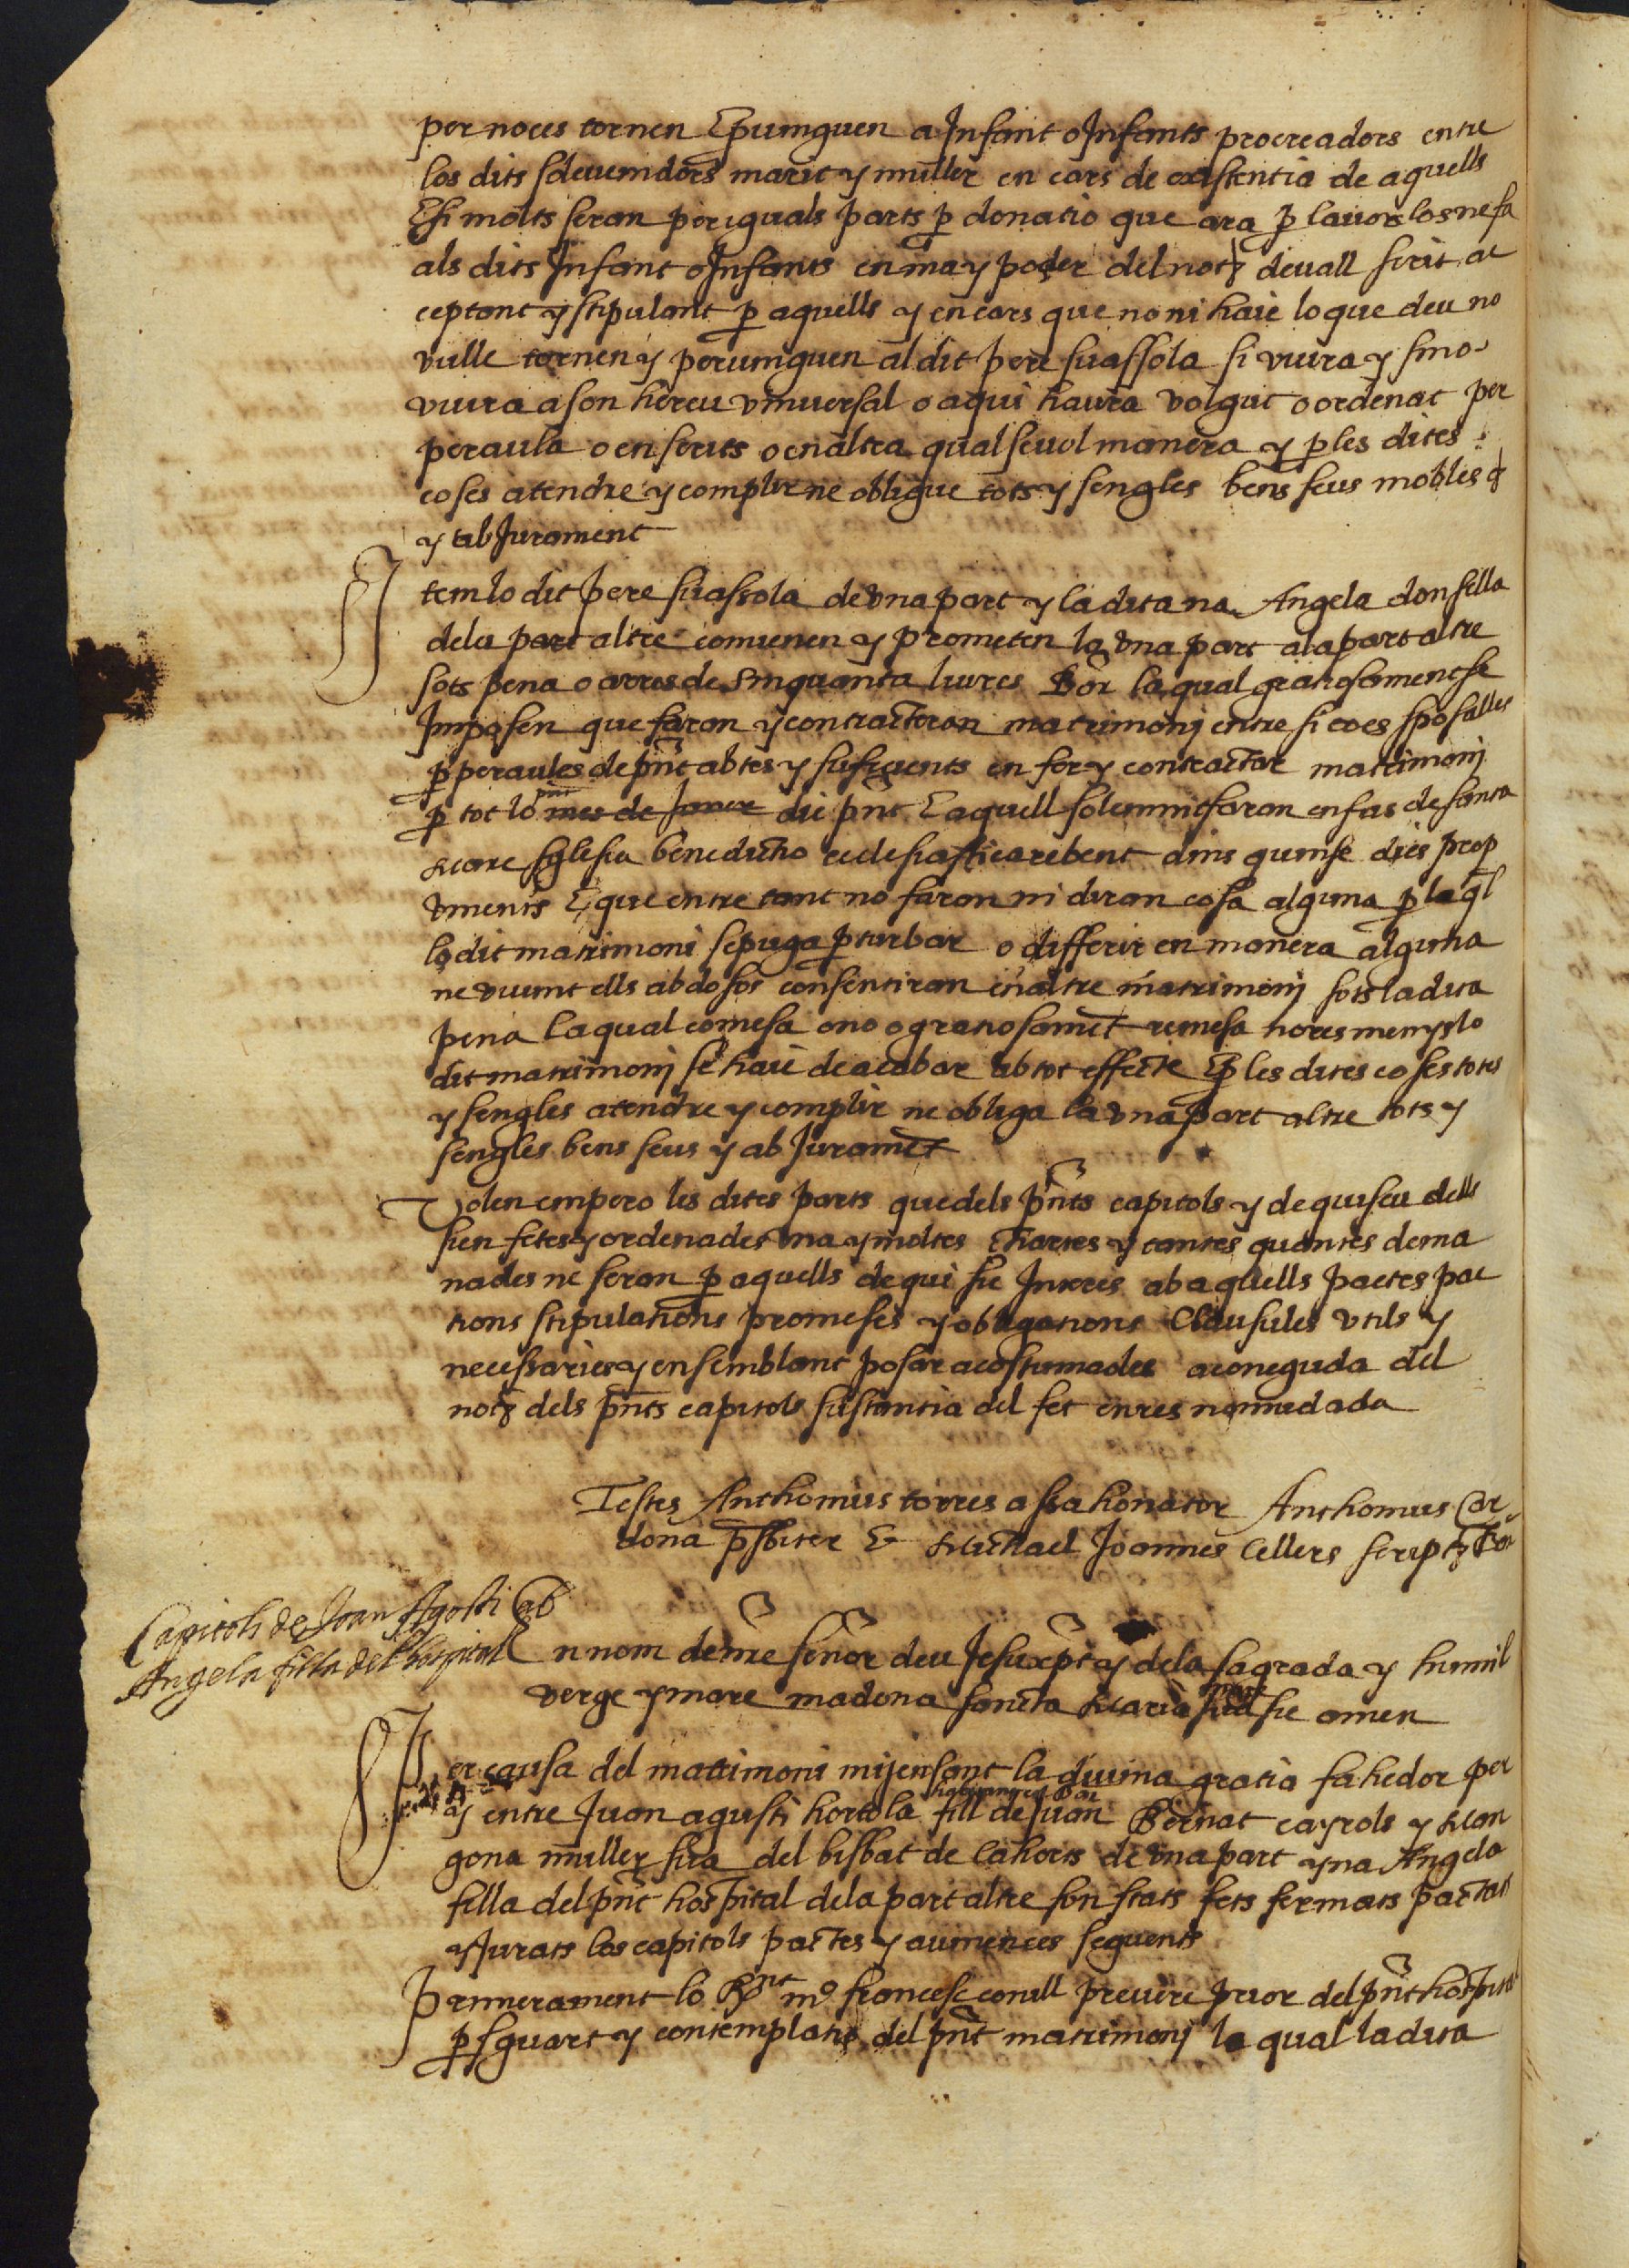 per noces tornen E pvinguen a Infant o Infants procreadors entre
los dits sdevenidors marit y muller en cars de existentia de aquells
E si molts seran per iguals parts p donatio que ara p lavors los ne fa
als dits Infant o Infants en ma y poder del not devall scrit ac
ceptant y stipulant p aquells y en cars que no ni haie lo que deu no
vulle tornen y pervinguen al dit pere suassola si viura y sino
viura a son hereu universal o a qui haura volgut o ordenat per
peraula o en scrits o en altra qualsevol manera y p les dites
coses atendre y complir ne obligue tots y sengles bens seus mobles &
y ab Jurament
Item lo dit pere suassola de una part y la dita na Angela donsella
de la part altre convenen y prometen la una part a la part altre
sots pena o arres de sinquanta liures Bar la qual gratiosament se
Imposen que faran y contractaran matrimonj entre si co es sposalles
p peraules de pnt abtes y sufisients en fer y contractar matrimonj
p tot lo pnt mes de Janer die pnt E aquell solemnitsaran en fas de santa
mare sglesia benedictio ecclesiastica rebent dins quinse dies prop
vinents E que entre tant no faran ni diran cosa alguna p la ql
lo dit matrimoni se puga pturbar o differir en manera alguna
ne vivint ells abdosos consentiran en altre matrimonj sots la dita
pena la qual comesa o no o gratiosamet remesa no res menys lo
dit matrimonj se haie de acabar ab tot effecte E p les dites coses totes
y sengles atendre y complir ne obliga la una part altre tots y
sengles bens seus y ab Juramet
Volen empero les dites parts que dels pnts capitols y de quiscu dells
sien fetes y ordenades una y moltes chartes y tantes quantes dema
nades ne seran p aquells de qui sie Interes ab aquells pactes pac
tions stipulations promeses y obligations Clausules utils y
necessaries y en semblant posar acostumades a coneguda del
not dels pnts capitols sustantia del fet en res no mudada
Testes Anthonius torres assahonator Anthonius Car
dona psbiter & Michael Joannes Cellers script
Capitols de Joan Agosti ab
Angela filla del hospital
En nom de nre senor deu Jesuxpt y de la sagrada y humil
verge y mare madona sancta Maria mare sua sie amen
Per causa del matrimoni mijensant la divina gratia fahedor per
y entre Juan agusti hortola fill de Juan Bernat cayrols y Man
gona muller sua del bisbat de Cahors de una part y na Angela
filla del pnt hospital de la part altre son stats fets fermats pactats
y Jurats los capitols pactes y avinences seguents
Primerament lo Rnt mº francesc conill prevere prior del pnt hospital
p sguart y contemplatio del pnt matrimonj lo qual la dita